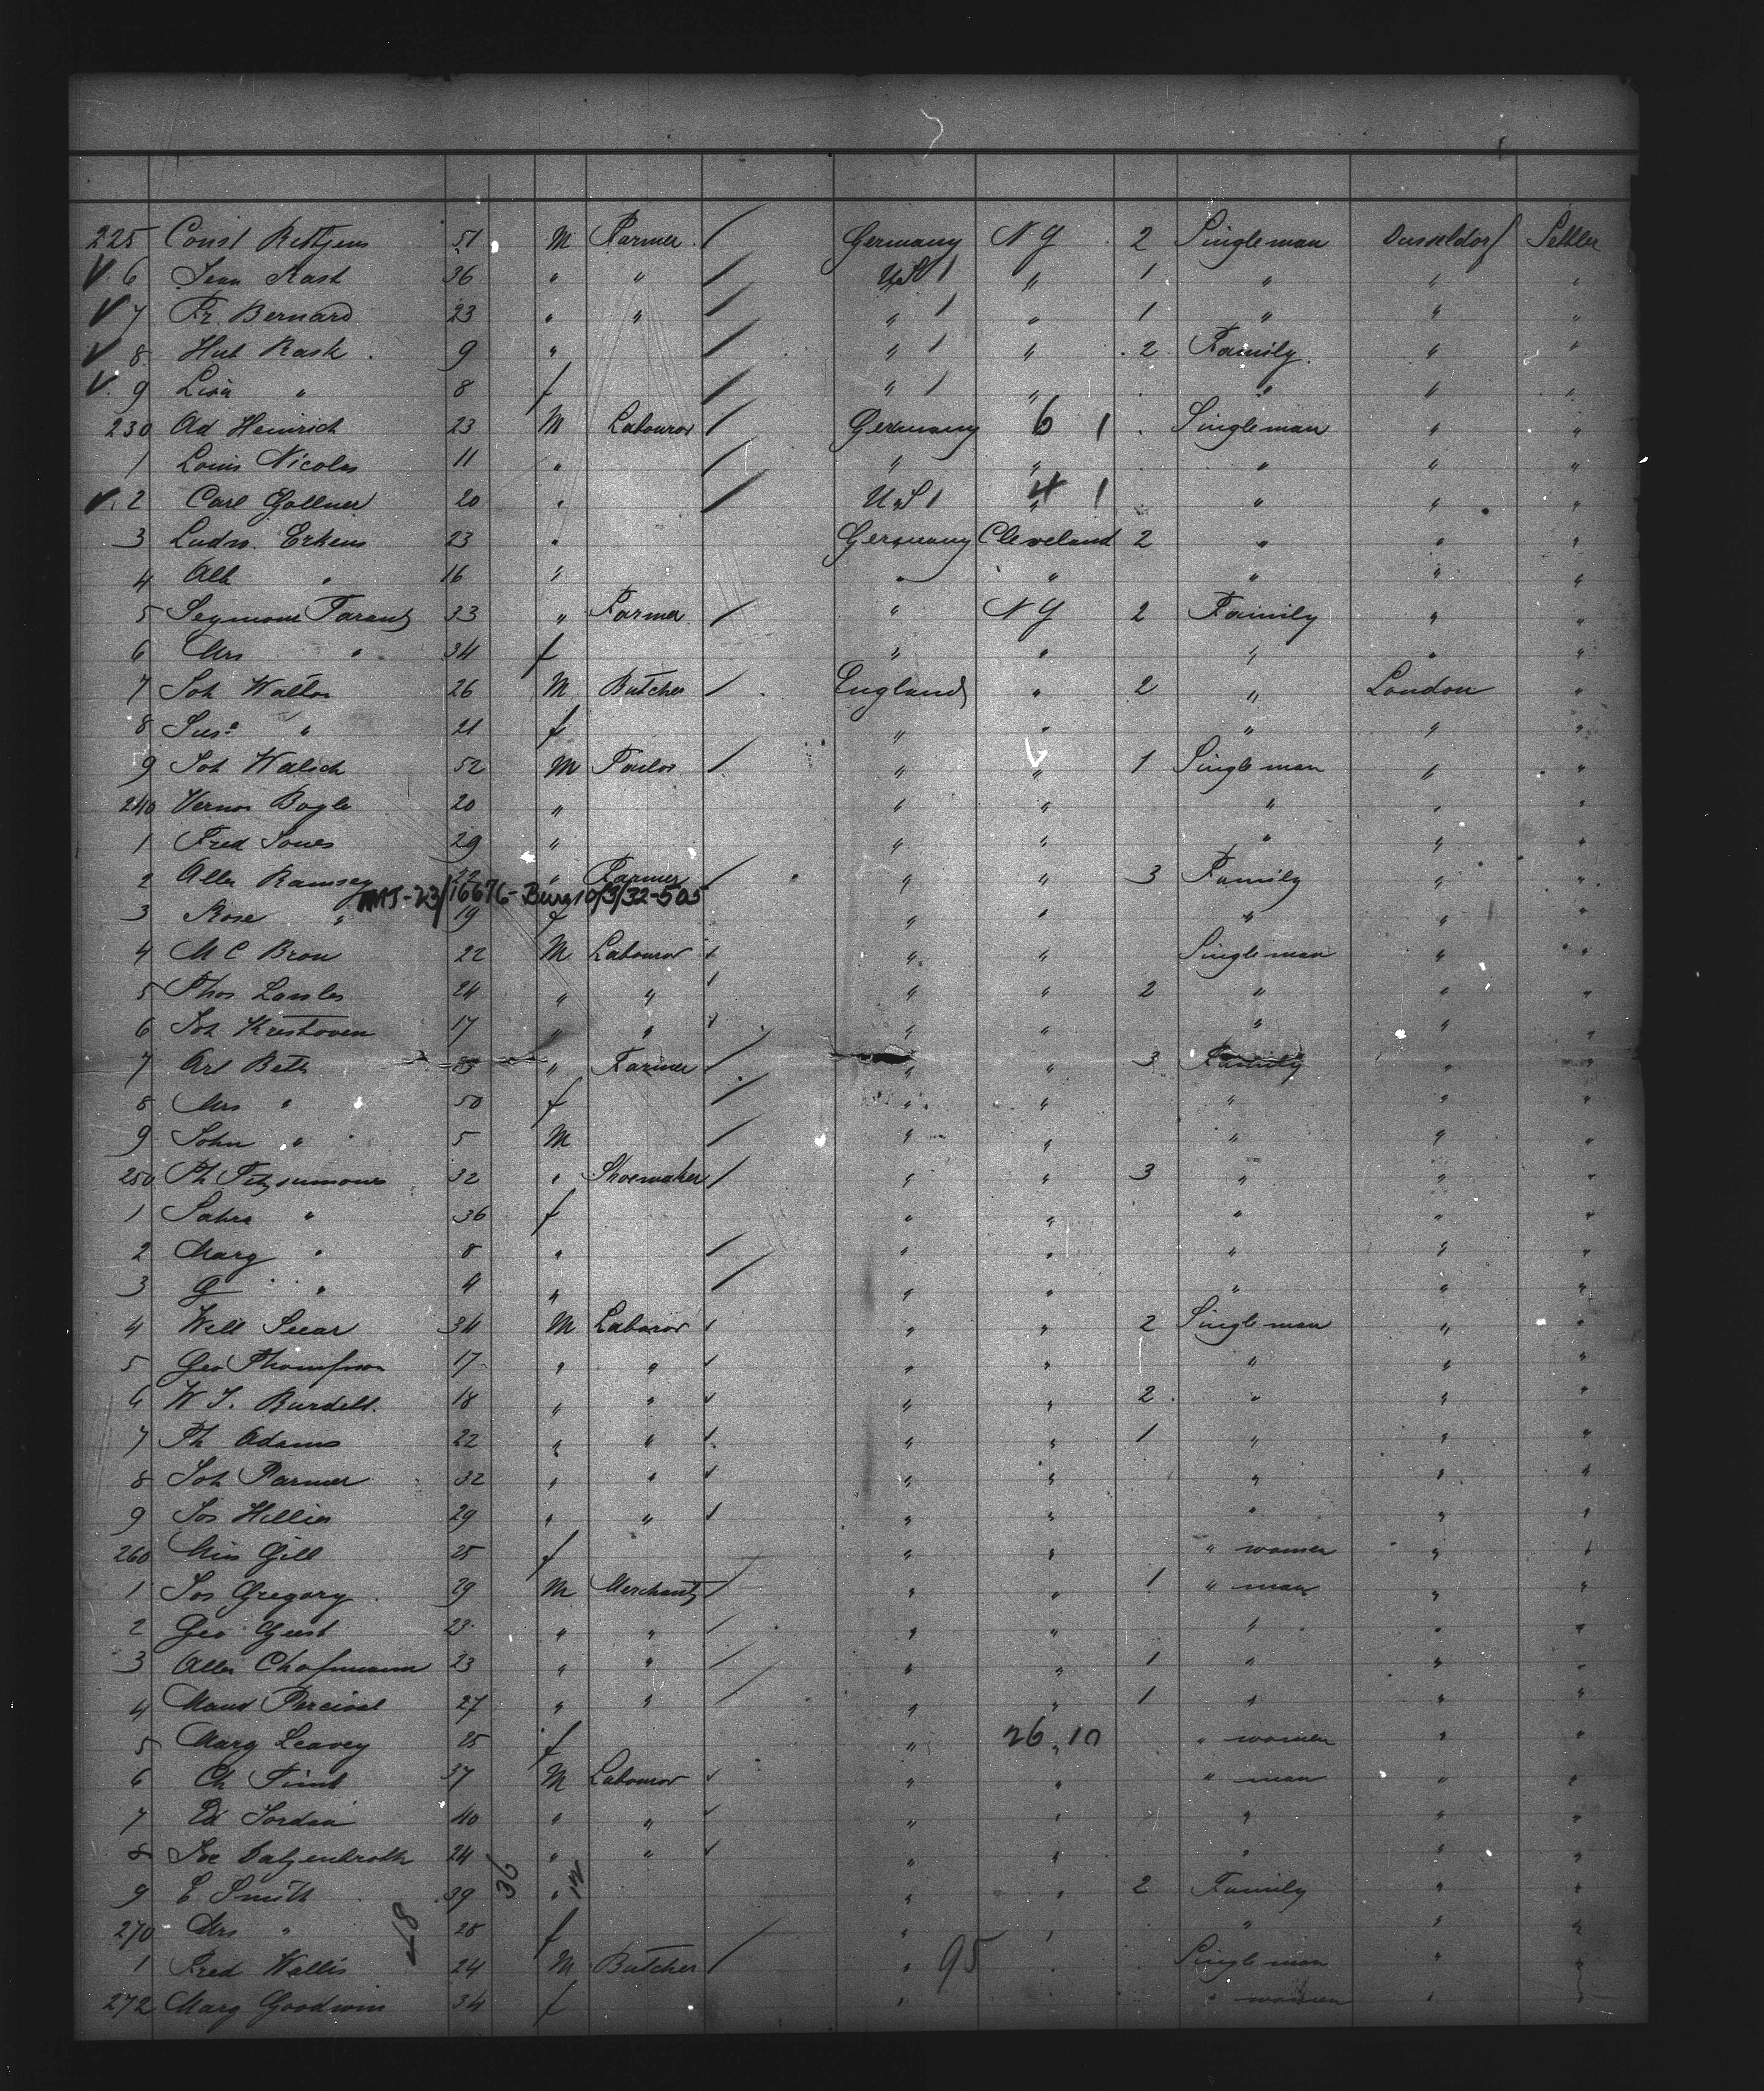 225 Const Rettjens 51 M Farmer / Germany N Y 2 Single man Dusseldorf Settler
V 6 Jean Rask 36 " " / U.S. 1 " 1 " " "
V 7 Fr. Bernard 23 " " / " 1 " 1 " " "
V 8 Hub Rask 9 " / " 1 " 2 Family " "
V 9 Lisa " 8 f / " 1 " " " "
230 Ad Heinrich 23 M Labourer / Germany 6 1 Single man " "
1 Louis Nicolas 11 " / " " " " "
V 2 Carl Gollner 20 " / U.S. 1 4 1 " " "
3 Ludw. Erkens 23 " Germany Cleveland 2 " " "
4 Alb " 16 " " " " " "
5 Seymour Tarant 33 " Farmer / " N Y 2 Family " "
6 Mrs " 34 f " " " " "
7 Joh Walton 26 M Butcher / England " 2 " London "
8 Sus. " 21 f " " " " "
9 Joh Walsch 52 M / " " 1 Single man " "
240 Vernon Bogle 20 " " " " " "
1 Fred Jones 29 " " " " " "
2 Allen Ramsey 22 " Farmer / " " 3 Family " "
23/16676- 10/3/32-505
3 Rose " 19 f " " " " "
4 M C Bron 22 M Labourer " " Single man " "
5 Thos 24 " " " " 2 " " "
6 Joh 17 " " " " " " "
7 Art Beth " Farmer / " " 3 Family " "
8 Mrs " 50 f / " " " " "
9 John " 5 M / " " " " "
250 Th Fitzsimmons 32 " Shoemaker / " " 3 " " "
1 Sahra " 36 f " " " " "
2 Marg " 8 " / " " " " "
3 G " 4 " / " " " " "
4 Will 34 M Laborer " " 2 Single man " "
5 Geo Thompson 17 " " " " " " "
6 W J. Burdell. 18 " " " " 2 " " "
7 Th Adams 22 " " " " 1 " " "
8 Joh Farmer 32 " " " " " " "
9 Jos Hillier 29 " " " " " " "
260 Miss Gill 25 f " " " women " "
1 Jos Gregory 29 M Merchant / " " 1 " man " "
2 Geo Gust 23 " " / " " " " "
3 Allen Chapmann 23 " " / " " 1 " " "
4 Maud Percival 27 " " / " " 1 " " "
5 Marg Leavey 25 f " 26 10 " women " "
6 Ch 37 M Labourer " " " man " "
7 Ed Jordan 40 " " " " " " "
8 Joe 24 " " " " " " "
9 E Smith 39 36 " 12 " " 2 Family " "
270 Mrs " 48 28 f " " " " "
1 Fred Wallis 24 M Butcher / " 95 " Single man " "
272 Marg Goodwin 34 f " " women " "